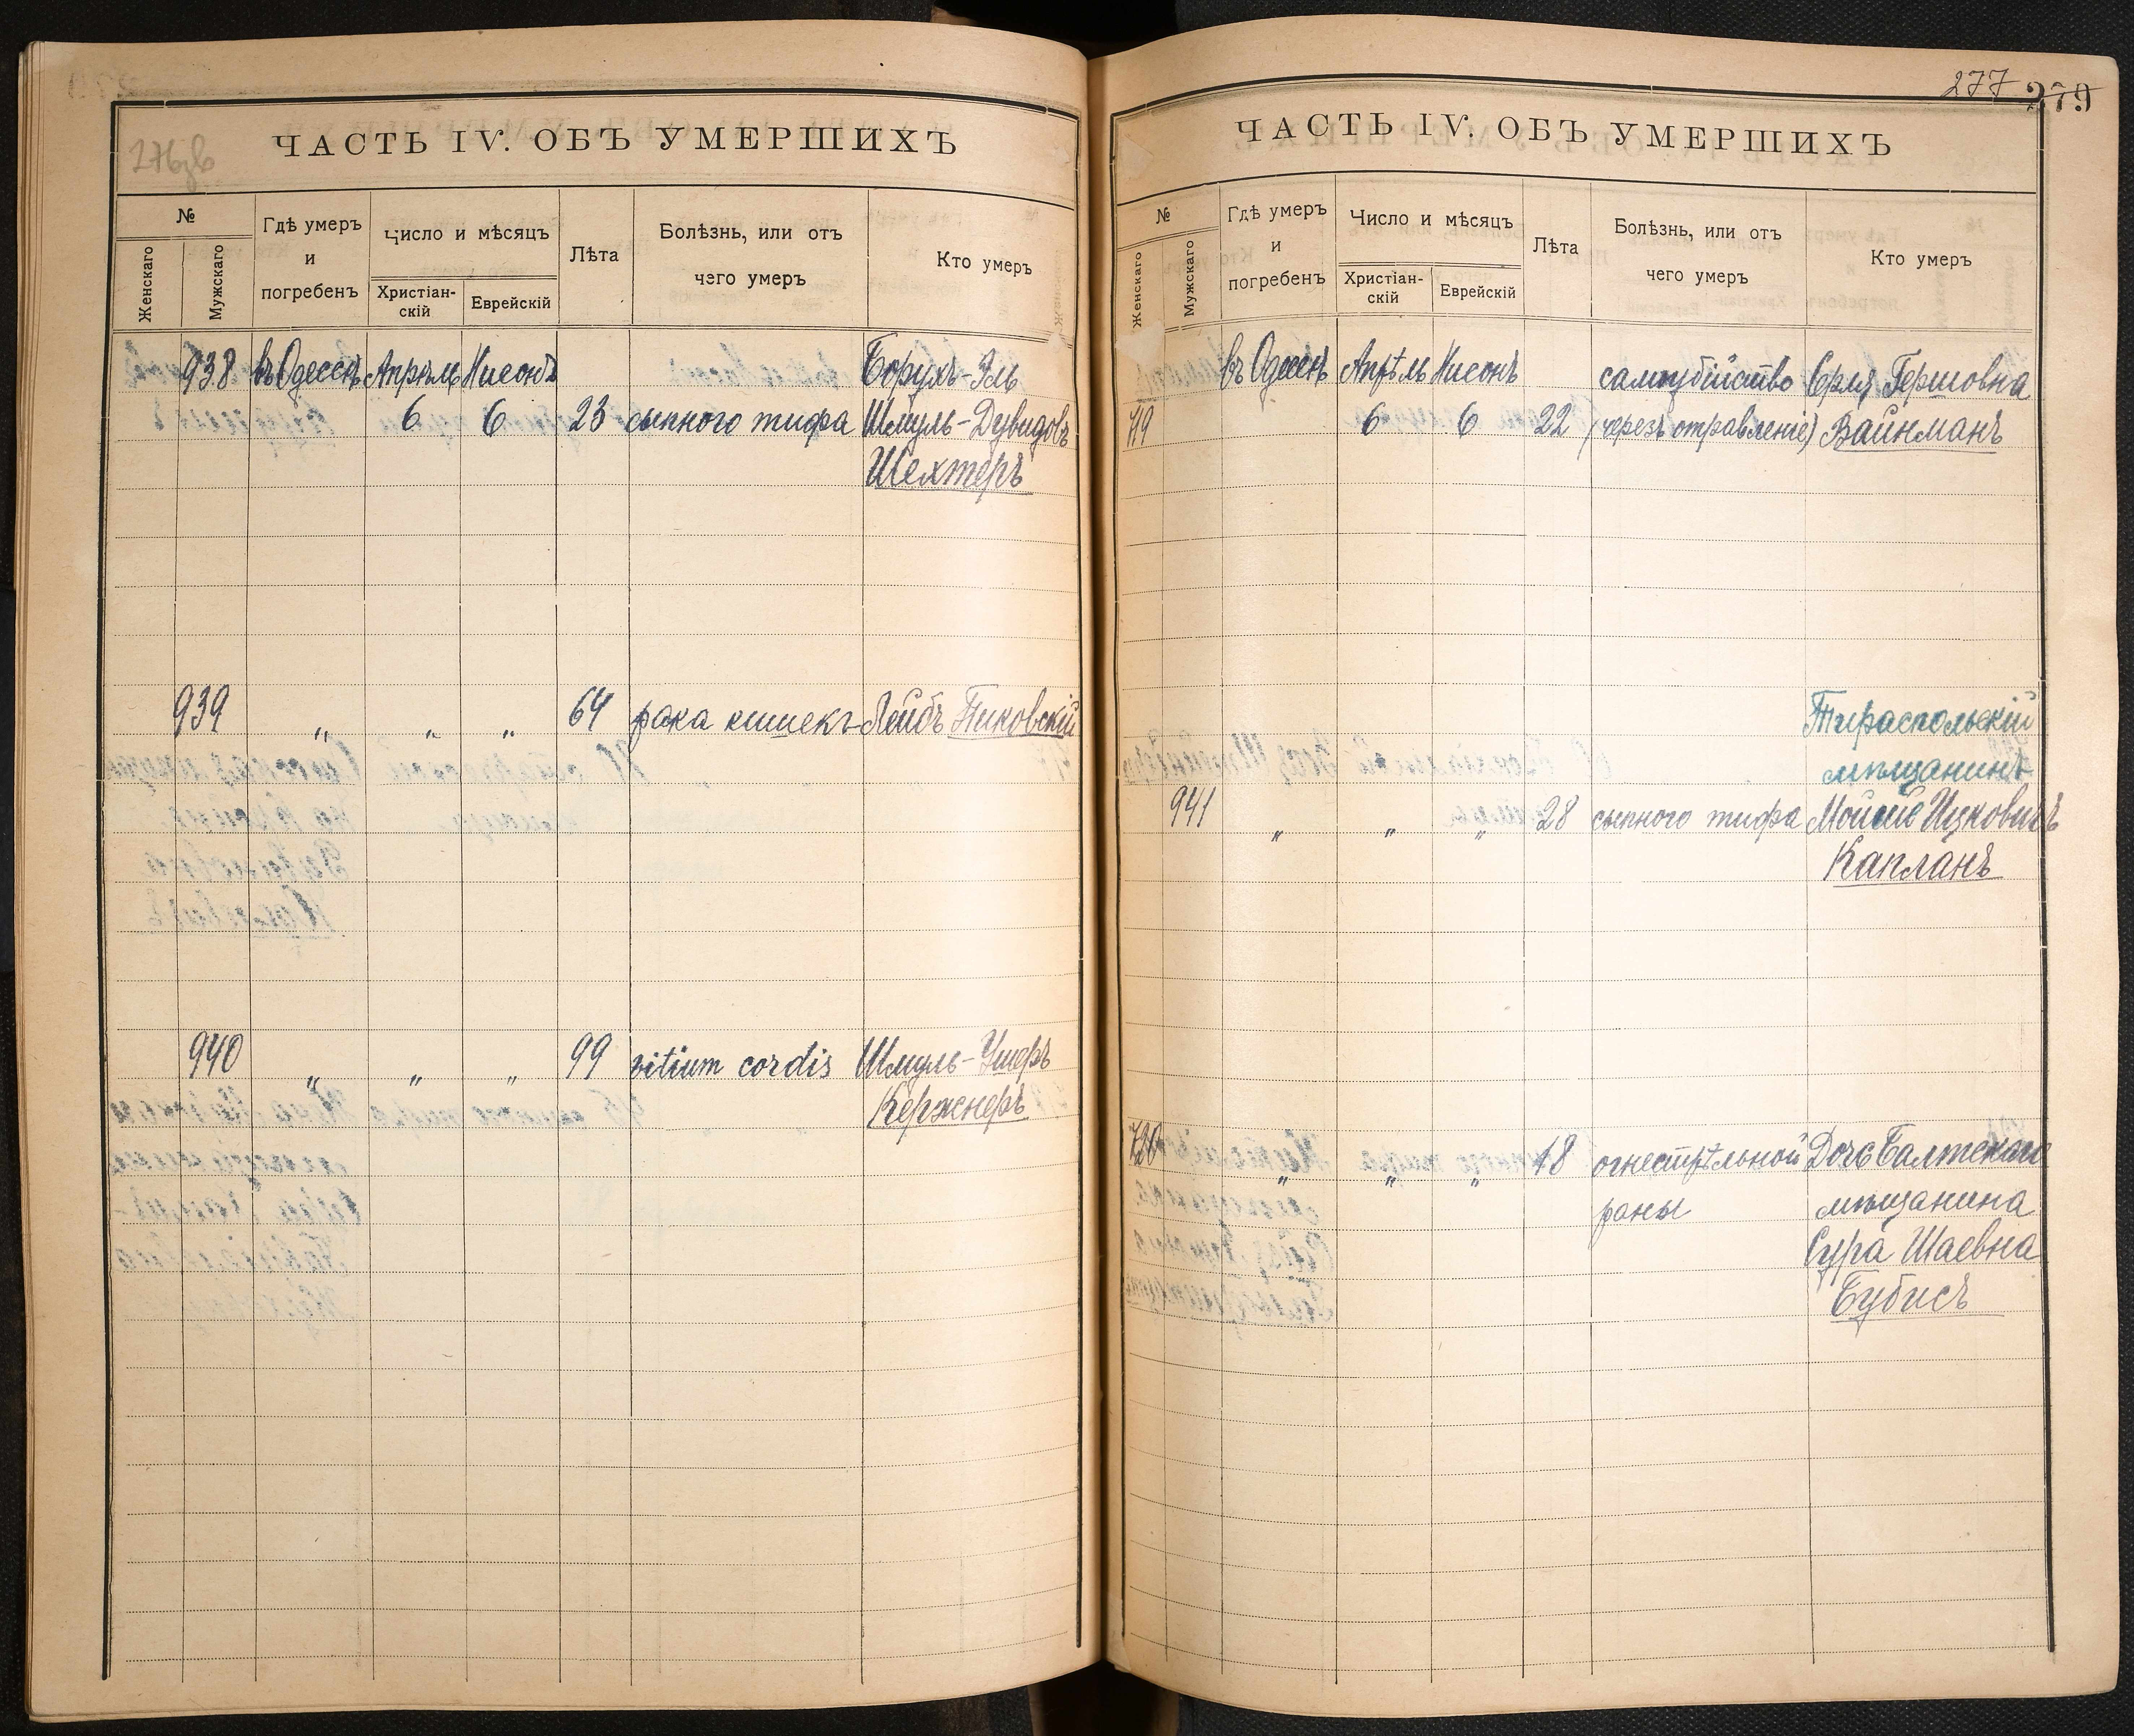 276зв
ЧАСТЬ IV. ОБЪ УМЕРШИХЪ
№
Женскаго
Мужскаго
Гдѣ умеръ
и
погребенъ
Число и мѣсяцъ
Христіан-
скій
Еврейскій
Лѣта
Болѣзнь, или отъ
чего умеръ
Кто умеръ
938 въ Одессѣ Апрѣль Нисонъ Борухъ-Эль
6 6 23 сыпного тифа Шмуль-Дувидовъ
Шехтеръ
939 " " " 64 рака кишекъ Лейбъ Пиковскій
940 " " " 99 vitium cordis Шмуль-Ушеръ
Кержнеръ
277 279
ЧАСТЬ IV. ОБЪ УМЕРШИХЪ
№
Женскаго
Мужскаго
Гдѣ умеръ
и
погребенъ
Число и мѣсяцъ
Христіан-
скій
Еврейскій
Лѣта
Болѣзнь, или отъ
чего умеръ
Кто умеръ
въ Одессѣ Апрѣль Нисонъ самоубійство Сруля Гершовна
719 6 6 22 (черезъ отравленіе) Вайнманъ
Тираспольскій
мѣщанинъ
941 " " " 28 сыпного тифа Мойсей Ицковичъ
Капланъ
720 " " " 18 огнестрѣльной Дочь Балтскаго
раны мѣщанина
Сура Шаевна
Бубисъ